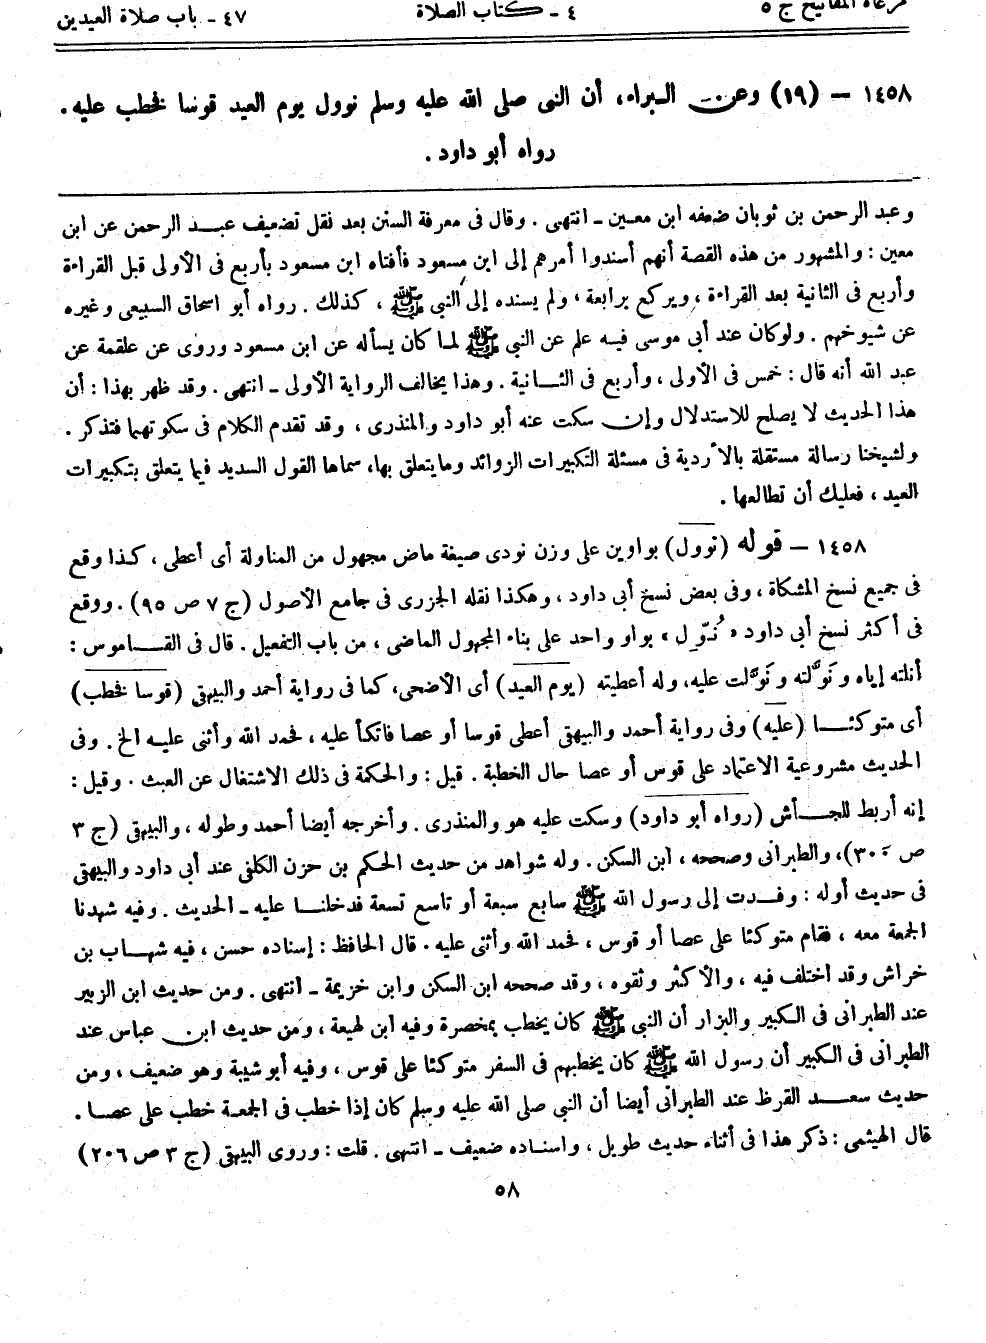 مرعاة المفاتيح ج ٥ ٤ ـ كتاب الصلاة ٤٧ ـ باب صلاة العيدين
١٤٥٨ – (١٩) وعن البراء، أن النبى صلى الله عليه وسلم نوول يوم العيد قوسا فخطب عليه .
رواه أبو داود .
وعبد الرحمن بن ثوبان ضعفه ابن معين ـ انتهى . وقال فى معرفة السنن بعد نقل تضعيف عبد الرحمن عن ابن
معين : والمشهور من هذه القصة أنهم أسندوا أمرهم إلى ابن مسعود فأفتاه ابن مسعود بأربع فى الأولى قبل القراءة
وأربع فى الثانية بعد القراءة ، ويركع برابعة ، ولم يسنده إلى النبى ﷺ ، كذلك . رواه أبو اسحاق السبيعى وغيره
عن شيوخهم . ولو كان عند أبى موسى فيه علم عن النبى ﷺ لما كان يسأله عن ابن مسعود وروى عن علقمة عن
عبد الله أنه قال : خمس فى الأولى ، وأربع فى الثانية . وهذا يخالف الرواية الأولى ـ انتهى . وقد ظهر بهذا : أن
هذا الحديث لا يصلح للاستدلال وإن سكت عنه أبو داود والمنذرى ، وقد تقدم الكلام فى سكوتهما فتذكر .
ولشيخنا رسالة مستقلة بالأردية فى مسئلة التكبيرات الزوائد وما يتعلق بها، سماها القول السديد فيما يتعلق بتكبيرات
العيد ، فعليك أن تطالعها .
١٤٥٨ – قوله (نوول) بواوين على وزن نودى صيغة ماض مجهول من المناولة أى أعطى ، كذا وقع
فى جميع نسخ المشكاة ، وفى بعض نسخ أبى داود ، وهكذا نقله الجزرى فى جامع الأصول (ج ٧ ص ٩٥) . ووقع
فى أكثر نسخ أبى داود « نُوّل » بواو واحد على بناء المجهول الماضى ، من باب التفعيل . قال فى القاموس :
أنلته إياه ونَوَّلته ونَوَّلت عليه، وله أعطيته (يوم العيد) أى الأضحى، كما فى رواية أحمد والبيهقى (قوسا فخطب)
أى متوكئا (عليه) وفى رواية أحمد والبيهقى أعطى قوسا أو عصا فاتكأ عليه ، فحمد الله وأثنى عليه الخ . وفى
الحديث مشروعية الاعتماد على قوس أو عصا حال الخطبة . قيل : والحكمة فى ذلك الاشتغال عن العبث . وقيل :
إنه أربط للجأش (رواه أبو داود) وسكت عليه هو والمنذرى . وأخرجه أيضا أحمد وطوله ، والبيهقى (ج ٣
ص ٣٠٠)، والطبرانى وصححه ، ابن السكن . وله شواهد من حديث الحكم بن حزن الكلفى عند أبى داود والبيهقى
فى حديث أوله : وفدت إلى رسول الله ﷺ سابع سبعة أو تاسع تسعة فدخلنا عليه ـ الحديث . وفيه شهدنا
الجمعة معه ، فقام متوكئا على عصا أو قوس ، فحمد الله وأثنى عليه . قال الحافظ : إسناده حسن ، فيه شهاب بن
خراش وقد اختلف فيه ، والأكثر وثقوه ، وقد صححه ابن السكن وابن خزيمة ـ انتهى . ومن حديث ابن الزبير
عند الطبرانى فى الكبير والبزار أن النبى ﷺ كان يخطب بمخصرة وفيه ابن لهيعة ، ومن حديث ابن عباس عند
الطبرانى فى الكبير أن رسول الله ﷺ كان يخطبهم فى السفر متوكئا على قوس ، وفيه أبو شيبة وهو ضعيف ، ومن
حديث سعد القرظ عند الطبرانى أيضا أن النبى صلى الله عليه وسلم كان إذا خطب فى الجمعة خطب على عصا .
قال الهيثمى : ذكر هذا فى أثناء حديث طويل ، واسناده ضعيف ـ انتهى . قلت : وروى البيهقى (ج ٣ ص ٢٠٦)
٥٨